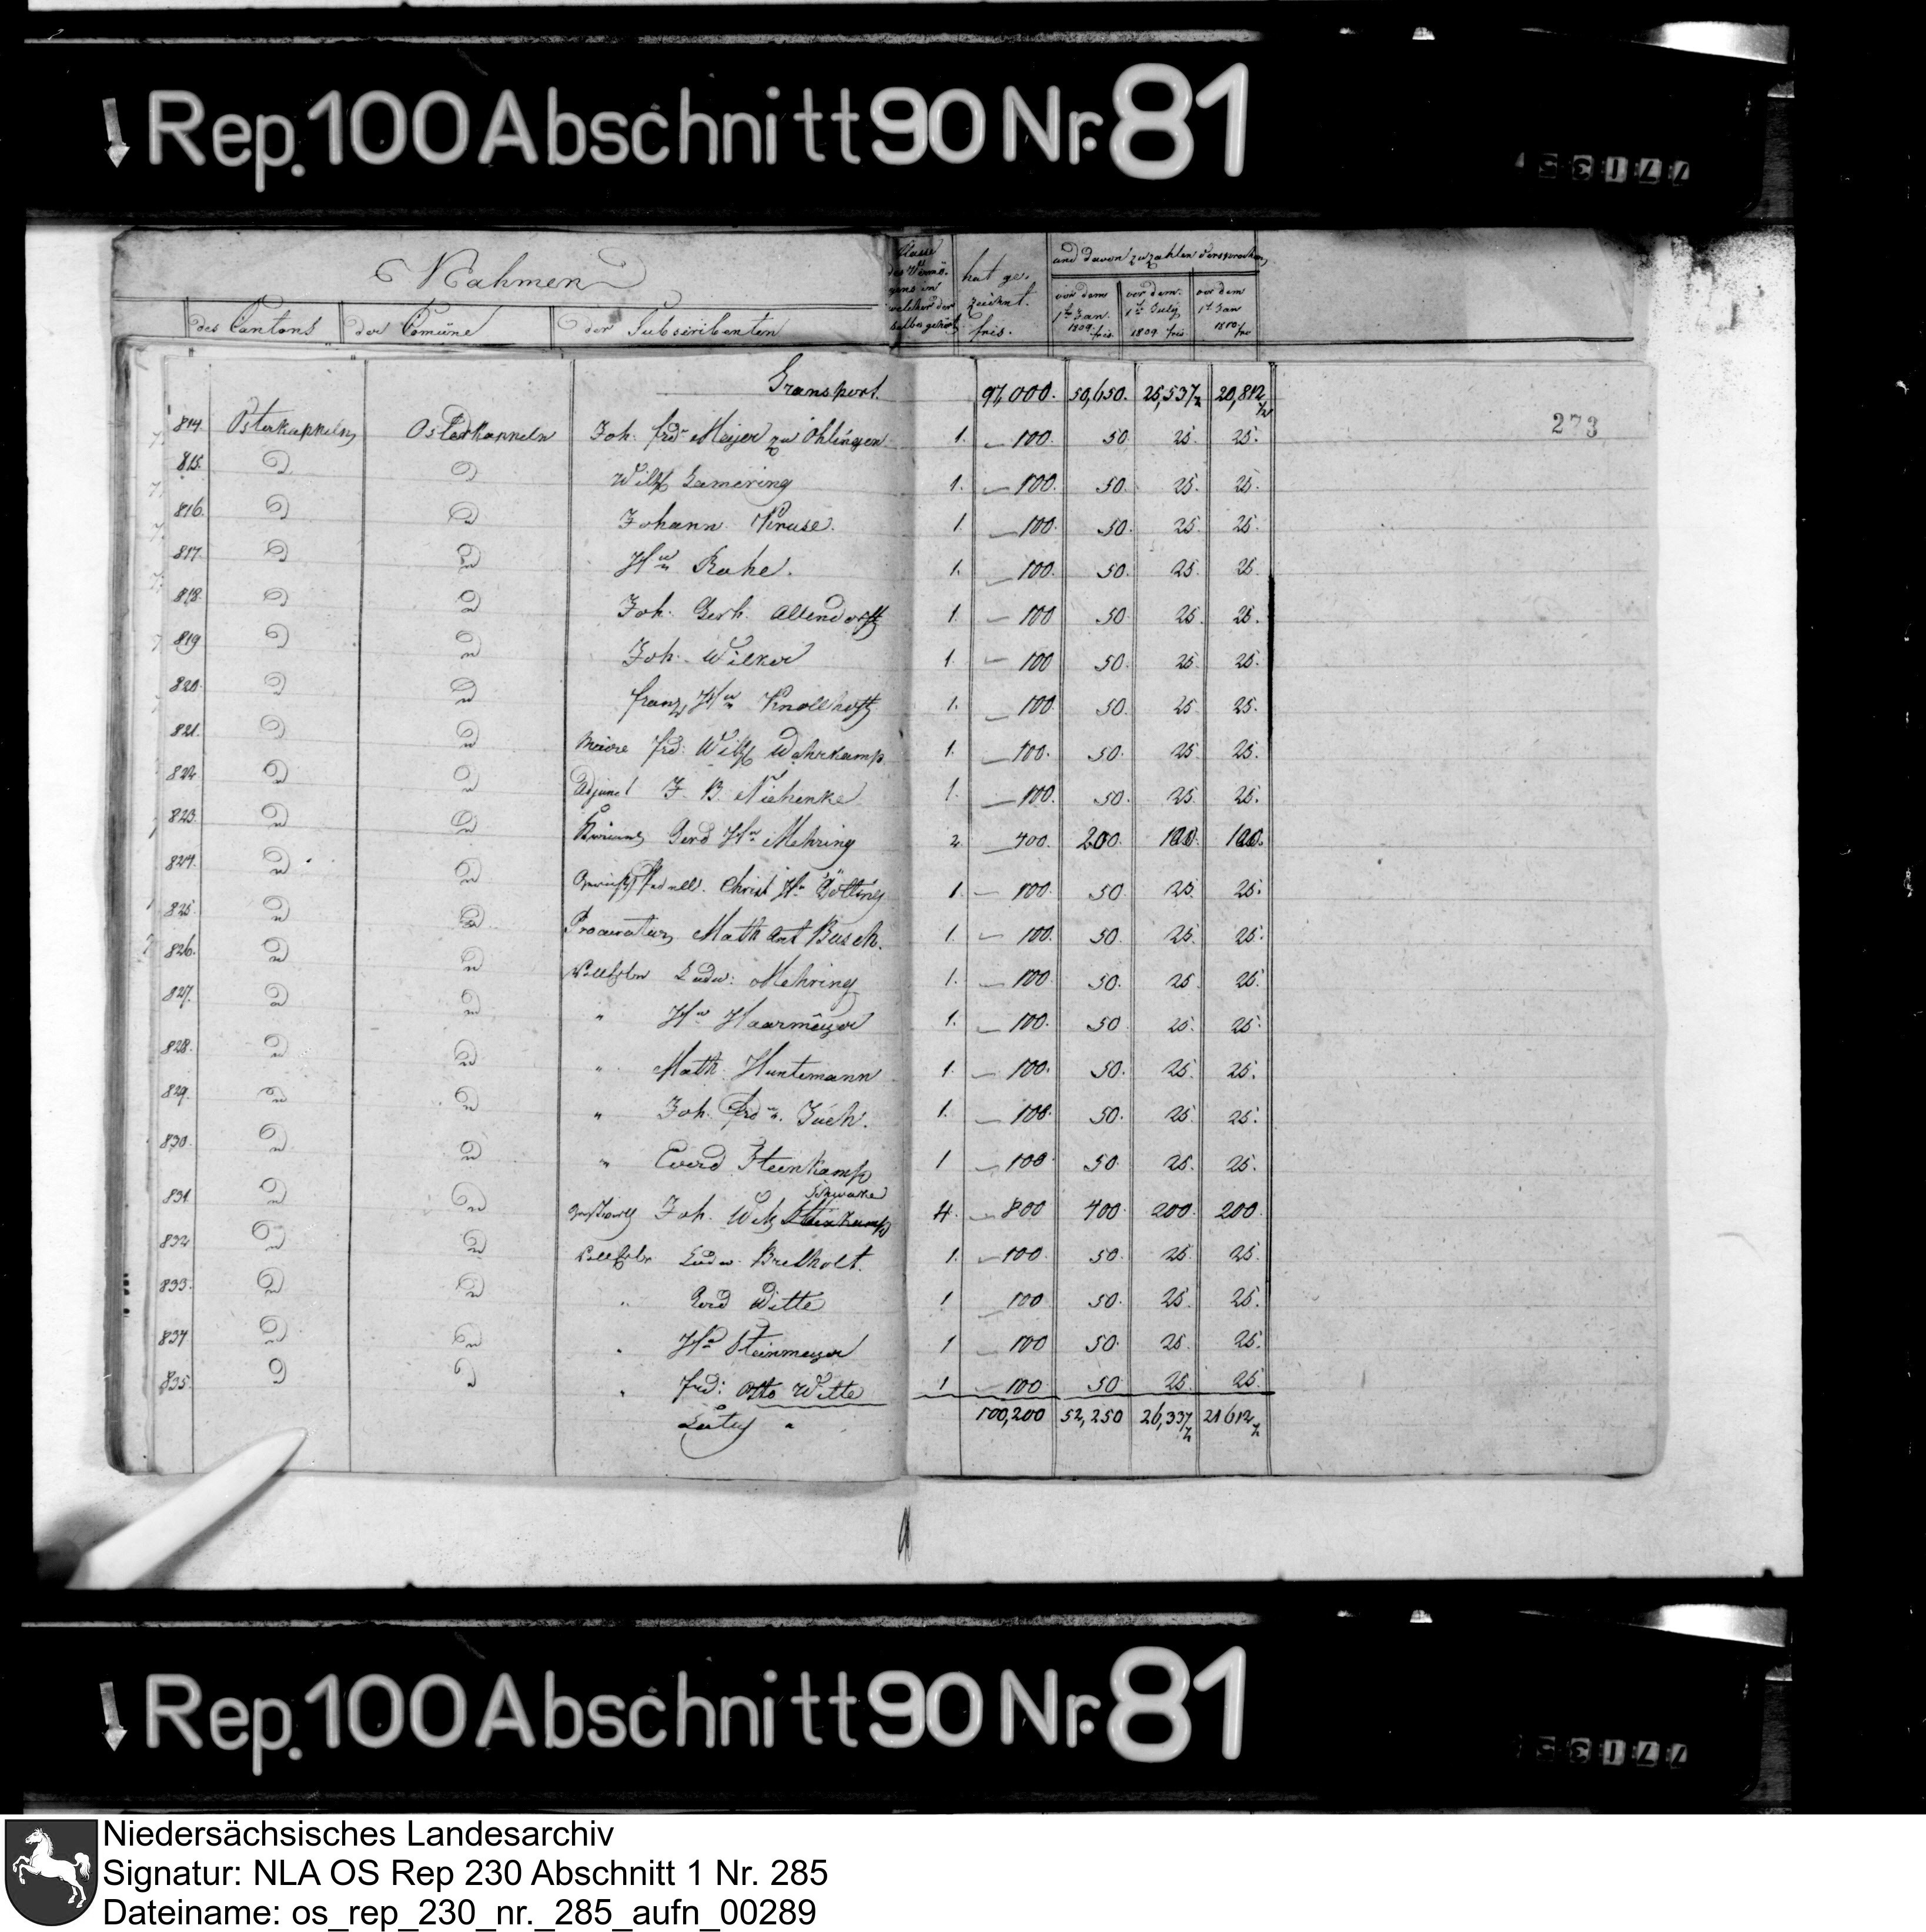 Rep. 100 Abschnitt 90 Nr. 81
Nahmen
des Cantons der Comüne der Subscribenten
Classe des Vermögens in welcher der selbe gehört
hat gezeichnet. frcs.
und davon zu zahlen versprochen
vor dem 1t Jan. 1809. frcs.
vor dem 1t July 1809 frcs
vor dem 1t Jan 1810 frc
Transport 97,000. 50,650. 25,537 ½ 20,812 ½
273
814. Osterkappeln Osterkappeln Joh. frd Meijer zu Ohlingen 1. 100. 50. 25. 25.
815. Wilh Gamering 1. 100. 50. 25. 25.
816. Johann Kruse. 1. 100. 50. 25. 25.
817. Hn Rahe. 1. 100. 50. 25. 25.
818. Joh. Gerh. Allendorff 1. 100 50. 25. 25.
819 Joh. Wilker 1. 100 50. 25. 25.
820. franz Hn Knollhoff 1. 100. 50. 25 25.
821. Maire frd: Wilh Wahrkamp 1. 100. 50. 25 25.
822 Adjunct J. B. Niehenke 1. 100. 50. 25. 25.
823. Gerd Hn Mehring 2. 400. 200. 100. 100.
824. Pedell. Christ Hn Gölting 1. 100. 50. 25. 25.
825. Procurator Math Ant Busch. 1. 100. 50. 25. 25.
826. Ludw: Mehring 1. 100. 50. 25 25.
827. " Hn Haarmeyer 1. 100. 50 25. 25.
828. " Math. Huntemann 1. 100. 50. 25. 25.
829. " Joh. frd Such. 1. 100. 50. 25 25.
830. " Everd Steenkamp 1 100 50. 25. 25.
831. Joh. Wilh Schwake 4. 800 400 200. 200.
832 Ludw. Bretholt. 1. 100 50. 25. 25.
833. " Gerd Witte 1 100 50. 25. 25.
834 " Hn Steinmeyer 1 100 50. 25. 25.
835. " frd: Otto Witte 1 100 50 25. 25.
Latus " 100,200 52,250 26,337 ½ 21612 ½
Rep. 100 Abschnitt 90 Nr. 81
Niedersächsisches Landesarchiv
Signatur: NLA OS Rep 230 Abschnitt 1 Nr. 285
Dateiname: os_rep_230_nr._285_aufn_00289